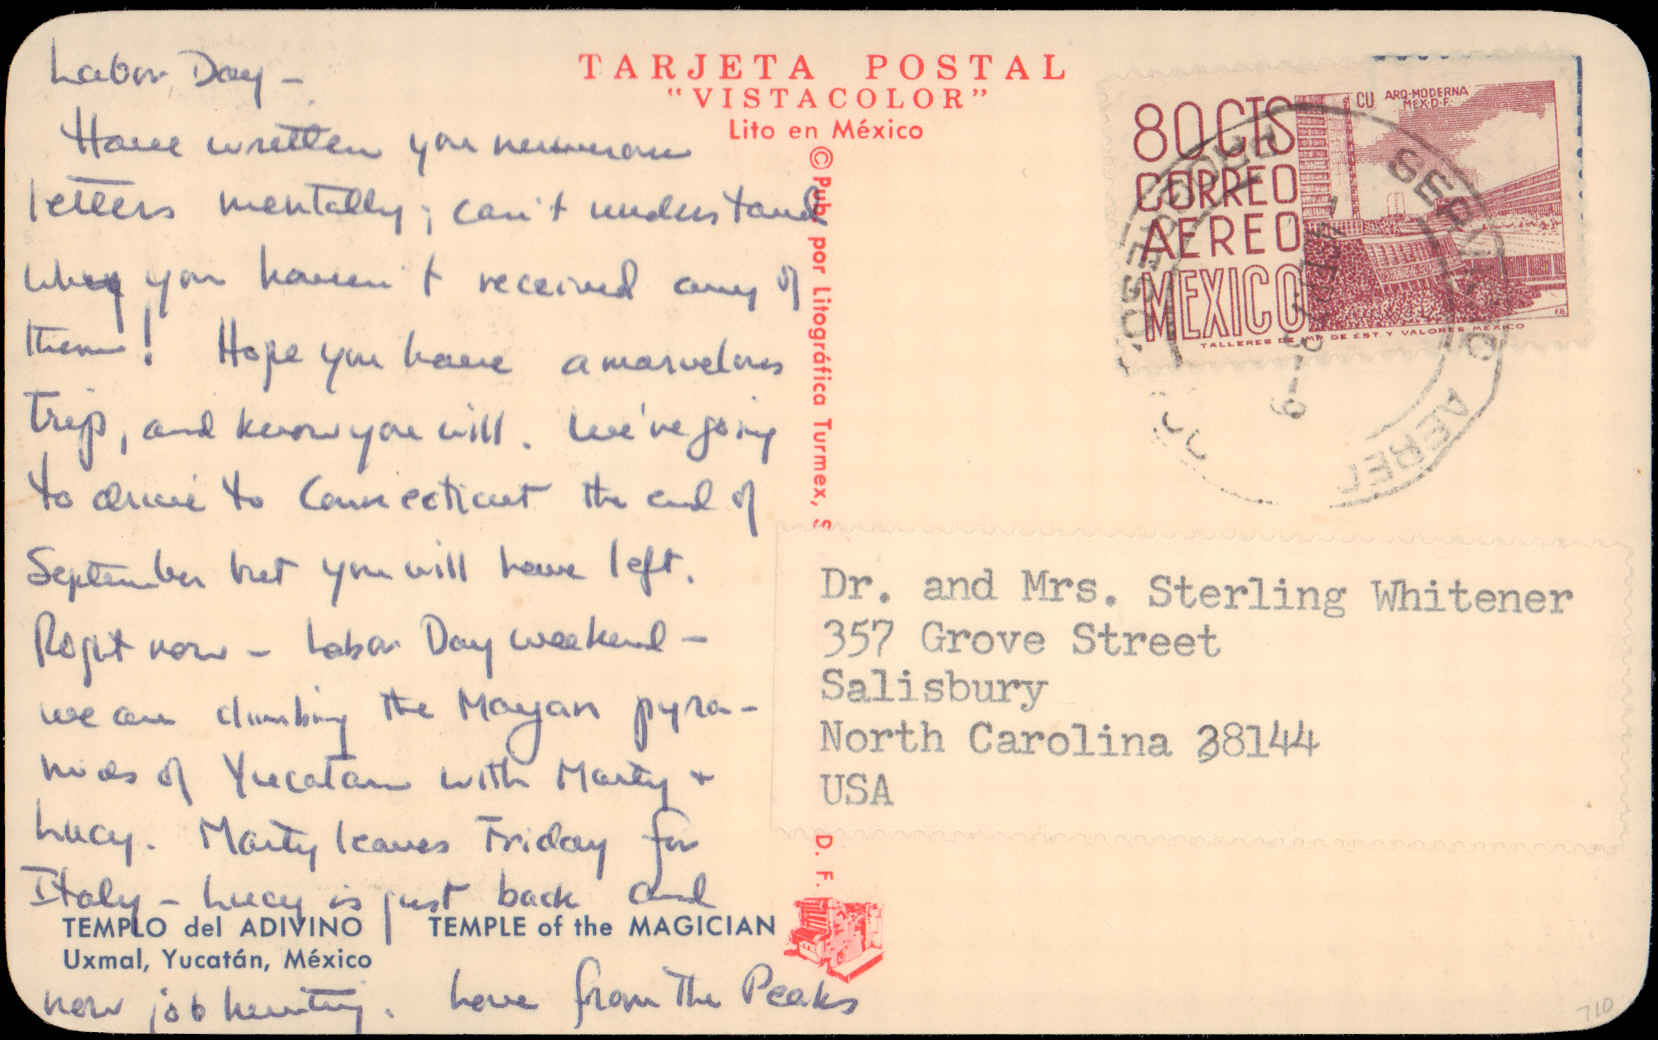 Labor Day -
Have written you numerous
letters mentally; can't understand
why you haven't received any of
them! Hope you have a marvelous
trip, and know you will. We're going
to drive to Connecticut the end of
September but you will have left.
Right now - Labor Day weekend -
we are climbing the Mayan pyra-
mids of Yucatan with Marty +
Lucy. Marty leaves Friday for
Italy - Lucy is just back and
now job hunting. Love from the Peaks
TEMPLO del ADIVINO | TEMPLE of the MAGICIAN
Uxmal, Yucatán, México
TARJETA POSTAL
"VISTACOLOR"
Lito en México
© Pub. por Litográfica Turmex, S
D. F.
80 CTS
CORREO
AEREO
MEXICO
CU ARQ-MODERNA
MEX-D-F.
TALLERES DE IMP. DE EST. Y VALORES MEXICO
SERVICIO AEREO
Dr. and Mrs. Sterling Whitener
357 Grove Street
Salisbury
North Carolina 28144
USA
710